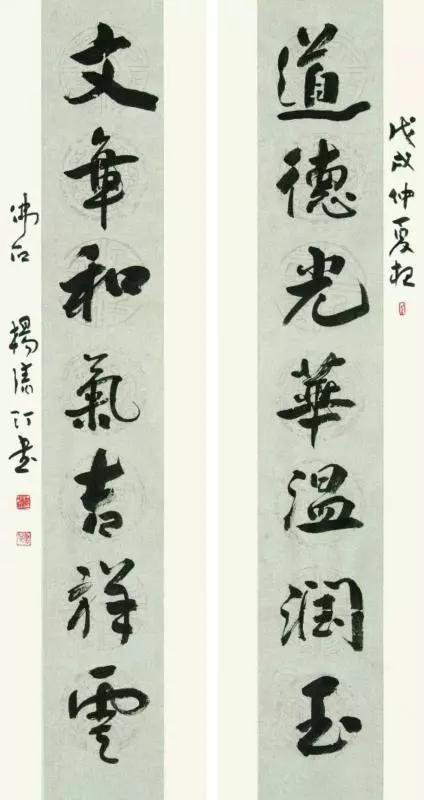 戊戌仲夏於
道德光華温潤玉
文章和氣吉祥雲
楊清汀書